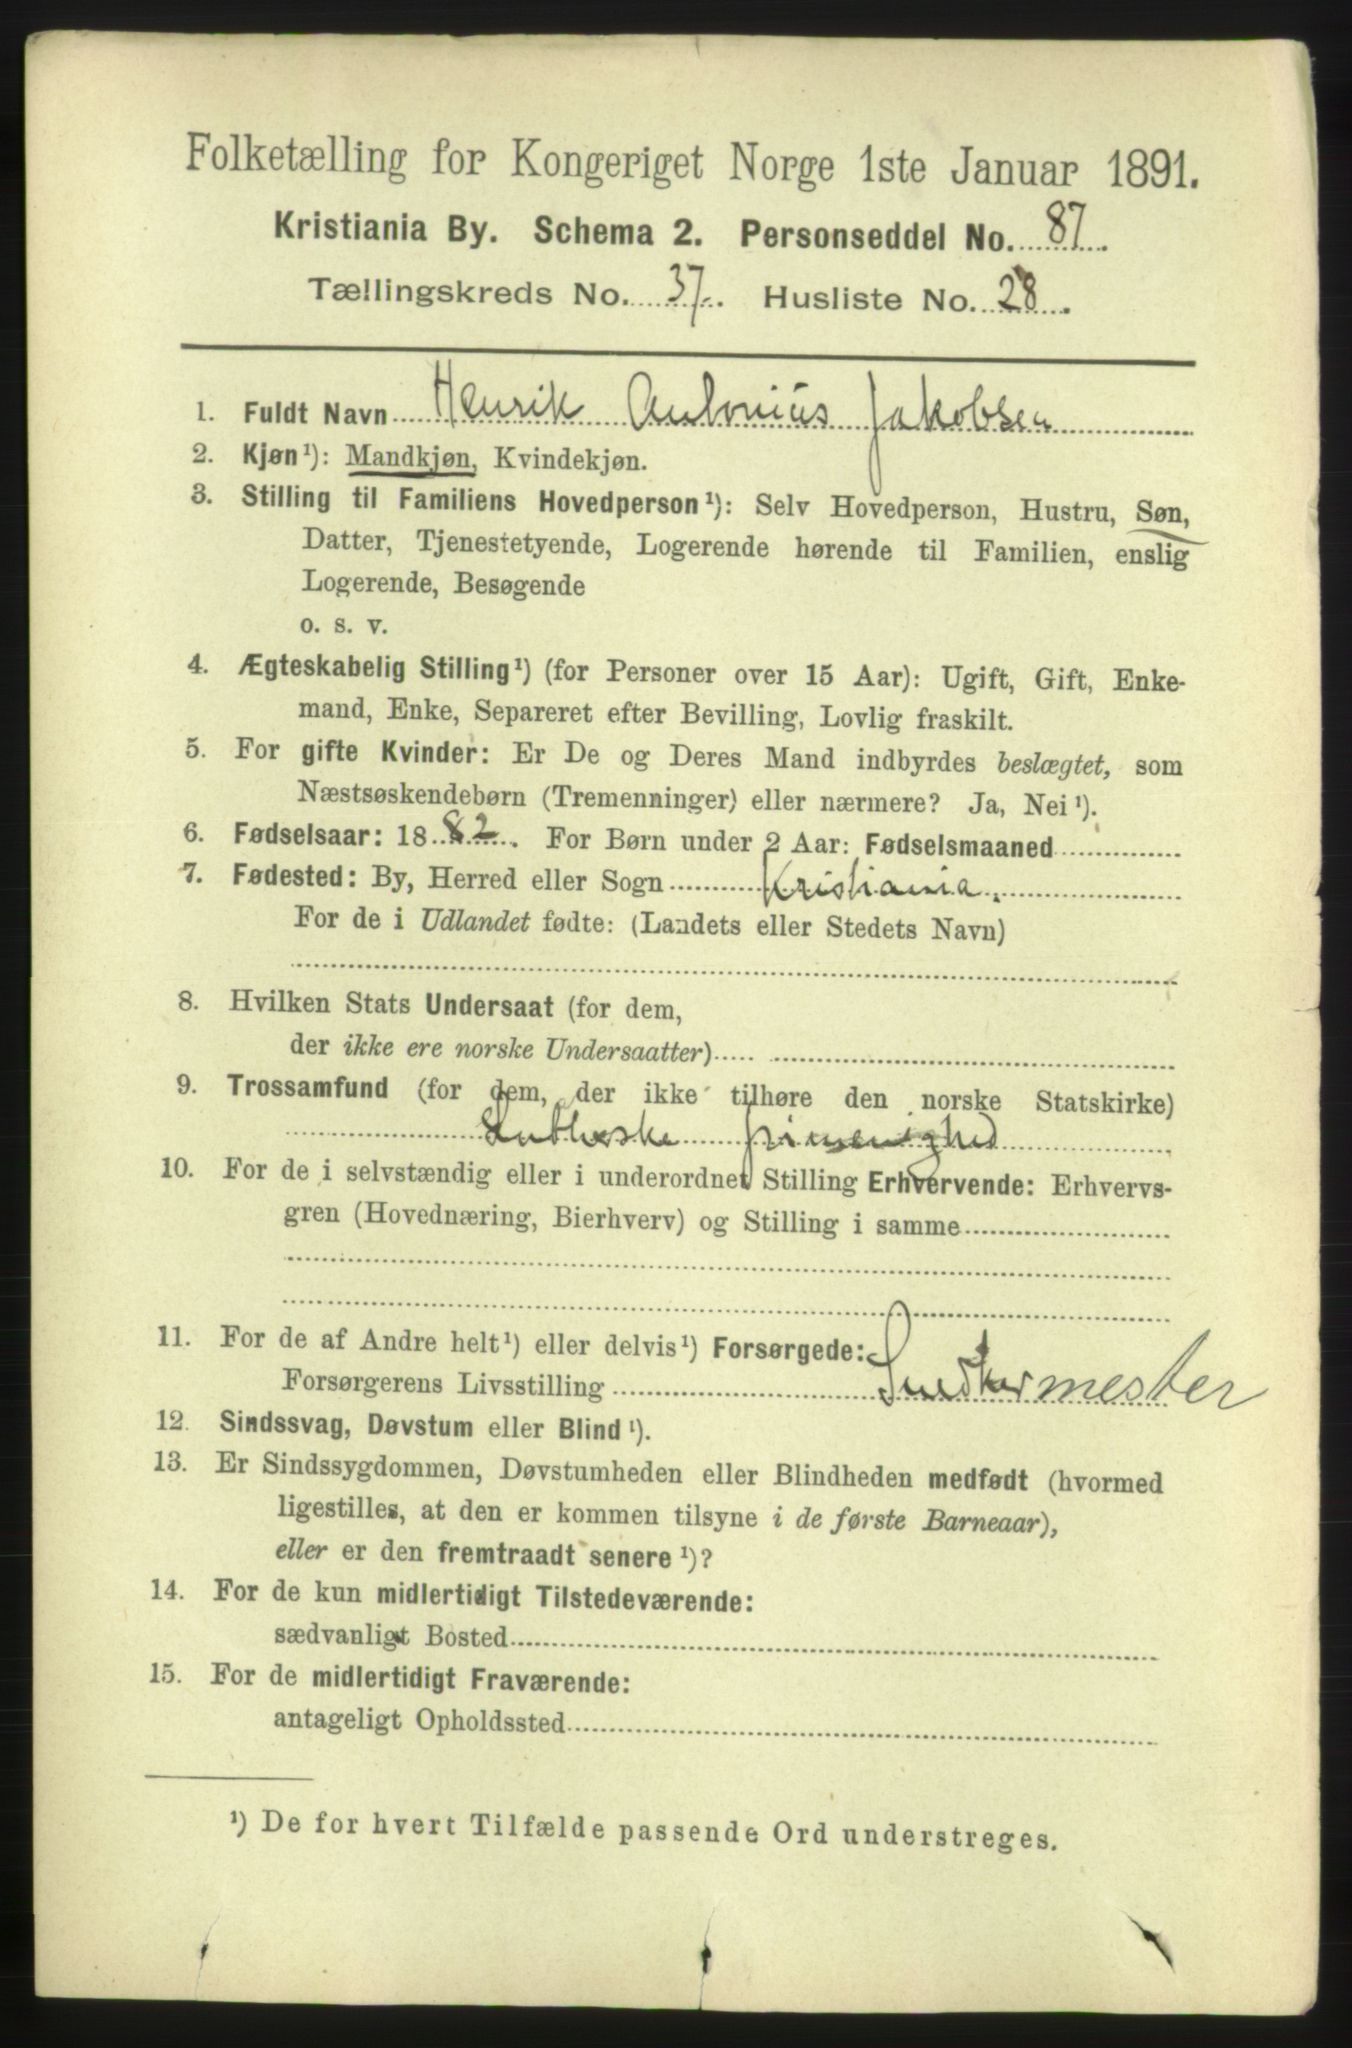 Folketælling for Kongeriget Norge 1ste Januar 1891.
Kristiania By. Schema 2. Personseddel No. 87.
Tællingskreds No. 37. Husliste No. 28.
1. Fuldt Navn Henrik Antonius Jakobsen
2. Kjøn¹): Mandkjøn, Kvindekjøn.
3. Stilling til Familiens Hovedperson¹): Selv Hovedperson, Hustru, Søn,
Datter, Tjenestetyende, Logerende hørende til Familien, enslig
Logerende, Besøgende
o. s. v.
4. Ægteskabelig Stilling¹) (for Personer over 15 Aar): Ugift, Gift, Enke-
mand, Enke, Separeret efter Bevilling, Lovlig fraskilt.
5. For gifte Kvinder: Er De og Deres Mand indbyrdes beslægtet, som
Næstsøskendebørn (Tremenninger) eller nærmere? Ja, Nei¹).
6. Fødselsaar: 1882. For Børn under 2 Aar: Fødselsmaaned
7. Fødested: By, Herred eller Sogn Kristiania.
For de i Udlandet fødte: (Landets eller Stedets Navn)
8. Hvilken Stats Undersaat (for dem,
der ikke ere norske Undersaatter)
9. Trossamfund (for dem, der ikke tilhøre den norske Statskirke)
Lutherske frimenighed
10. For de i selvstændig eller i underordnet Stilling Erhvervende: Erhvervs-
gren (Hovednæring, Bierhverv) og Stilling i samme
11. For de af Andre helt¹) eller delvis¹) Forsørgede:
Forsørgerens Livsstilling Snedkermester
12. Sindssvag, Døvstum eller Blind¹).
13. Er Sindssygdommen, Døvstumheden eller Blindheden medfødt (hvormed
ligestilles, at den er kommen tilsyne i de første Barneaar),
eller er den fremtraadt senere¹)?
14. For de kun midlertidigt Tilstedeværende:
sædvanligt Bosted
15. For de midlertidigt Fraværende:
antageligt Opholdssted
¹) De for hvert Tilfælde passende Ord understreges.